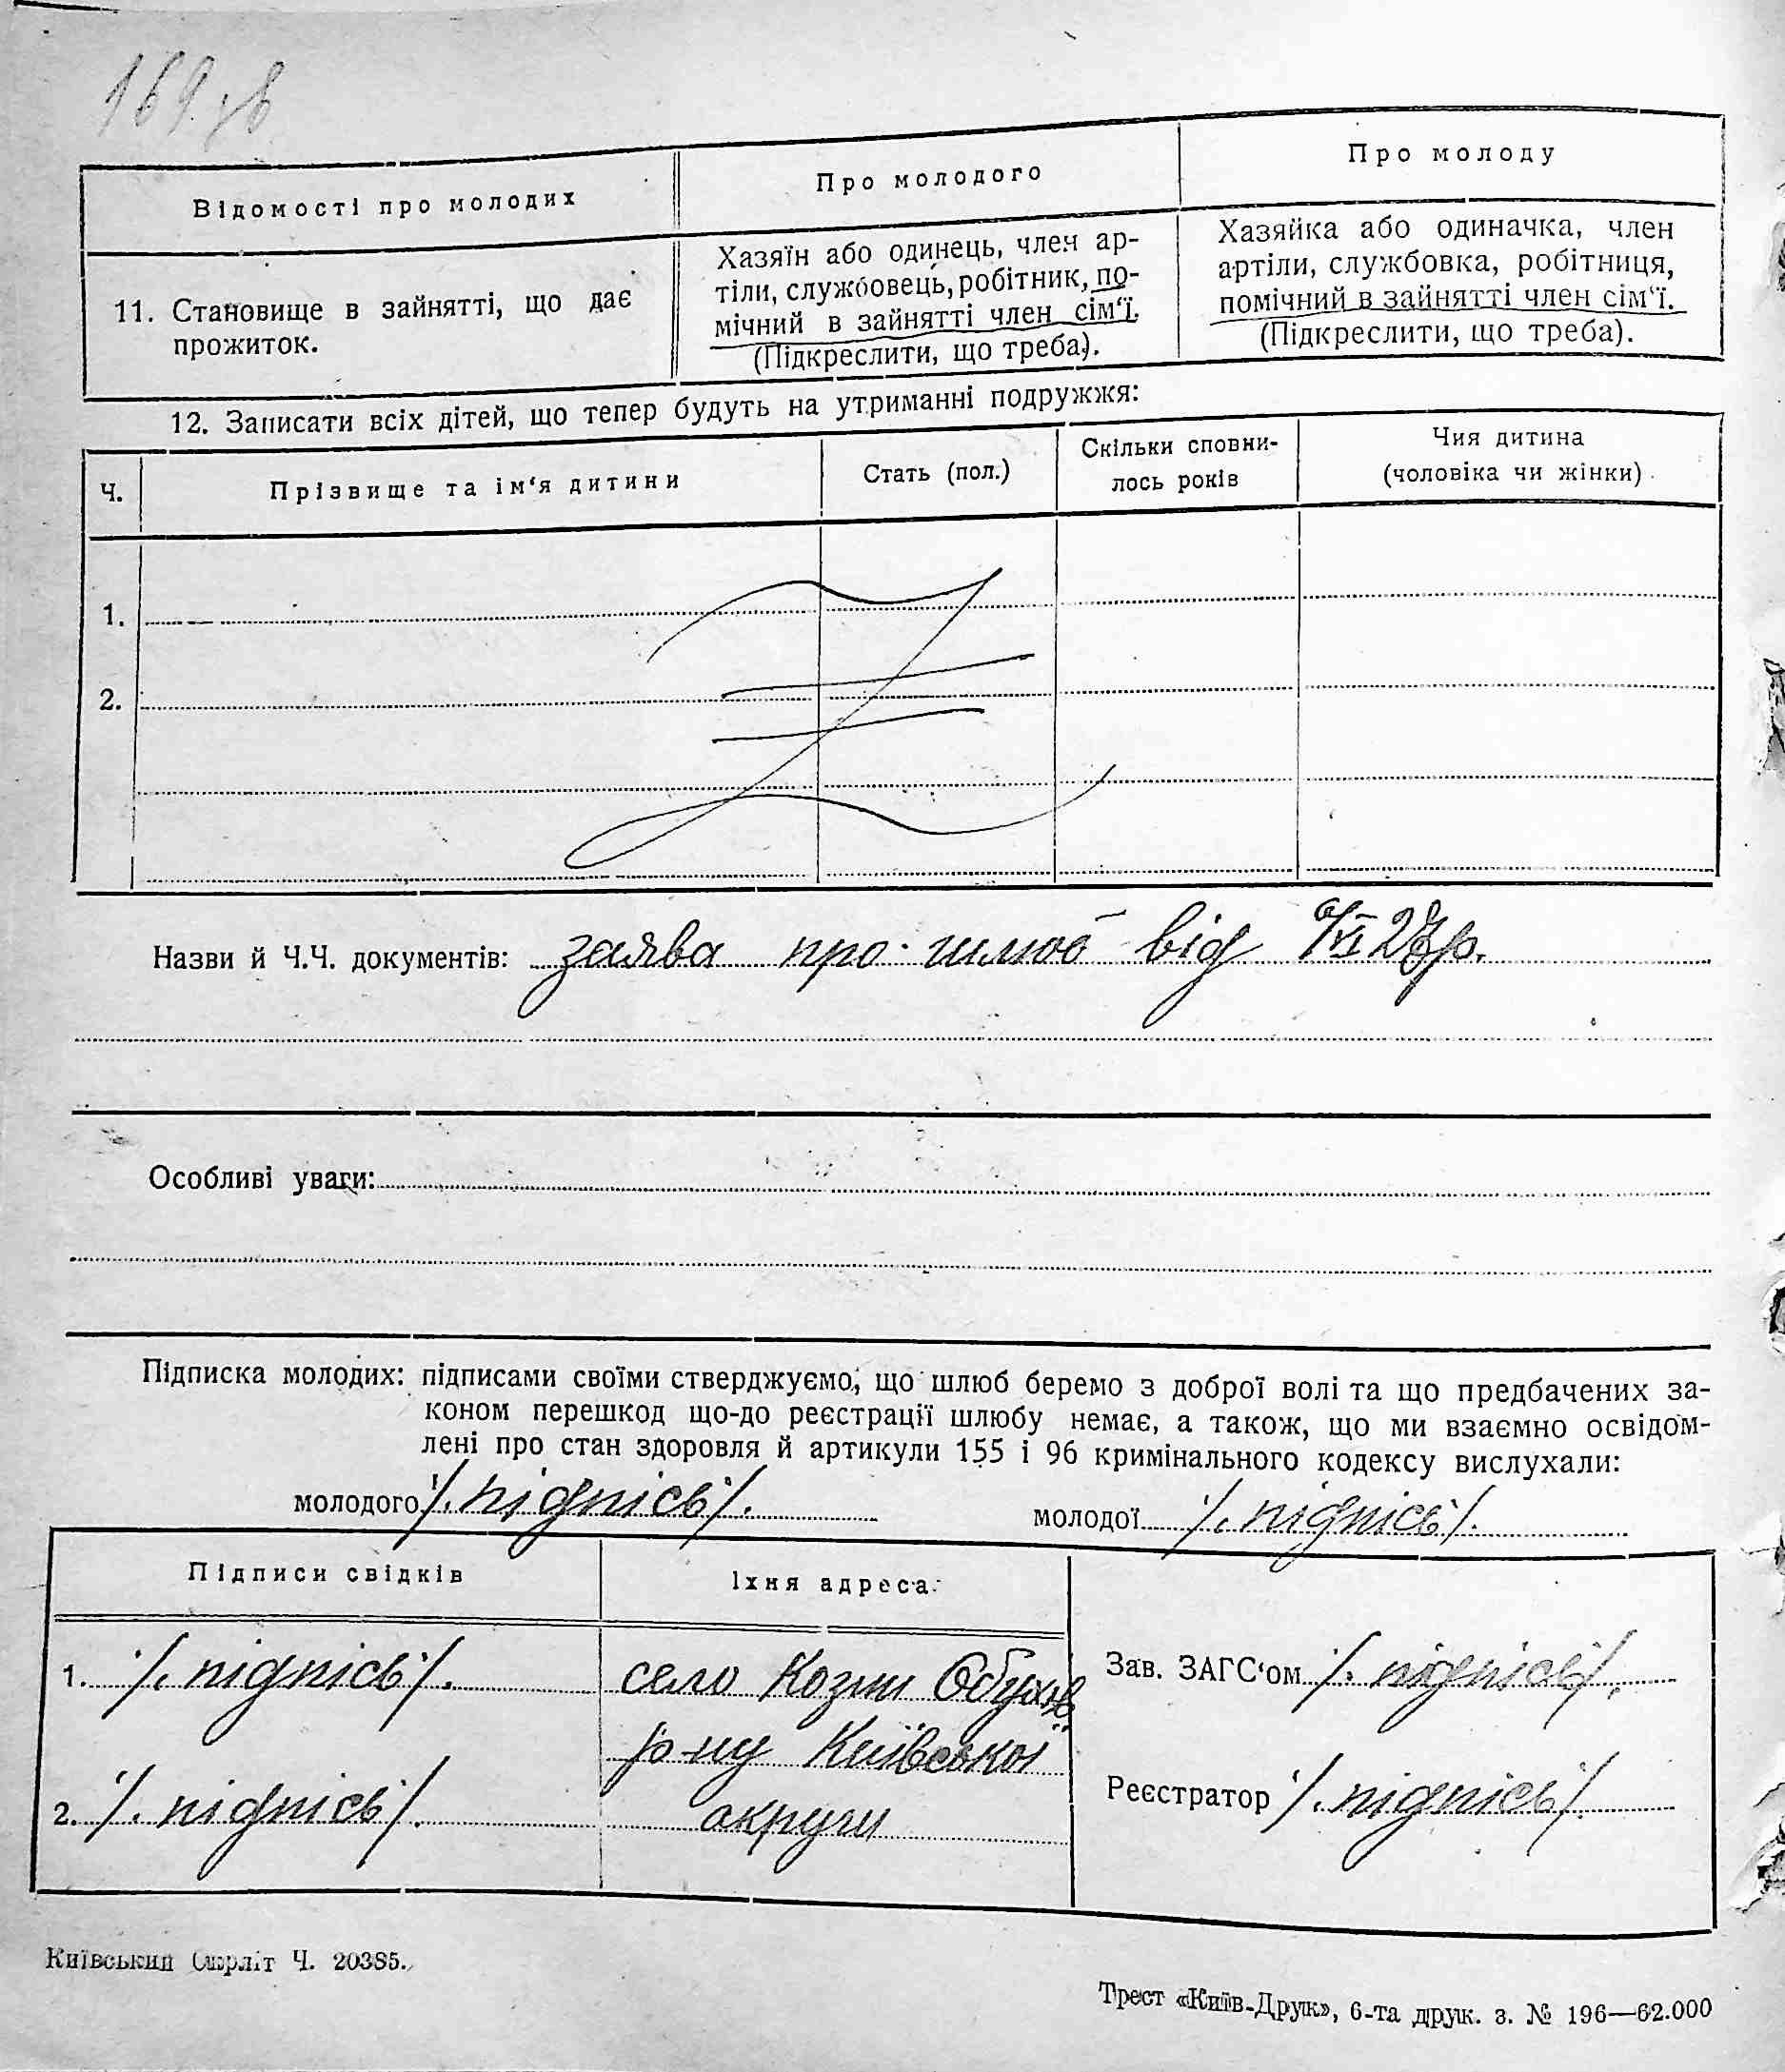 169 зв
Відомості про молодих
Про молодого
Про молоду
11. Становище в зайнятті, що дає
прожиток.
Хазяїн або одинець, член ар-
тіли, службовець, робітник, по-
мічний в зайнятті член сім‘ї.
(Підкреслити, що треба).
Хазяйка або одиначка, член
артіли, службовка, робітниця,
помічний в зайнятті член сім‘ї.
(Підкреслити, що треба).
12. Записати всіх дітей, що тепер будуть на утриманні подружжя:
Ч.
Прізвище та ім‘я дитини
Стать (пол.)
Скільки сповни-
лось років
Чия дитина
(чоловіка чи жінки)
1.
2.
Назви й Ч.Ч. документів: заява про шлюб від VI 27 р.
Особливі уваги:
Підписка молодих: підписами своїми стверджуємо, що шлюб беремо з доброї волі та що предбачених за-
коном перешкод що-до реєстрації шлюбу немає, а також, що ми взаємно освідом-
лені про стан здоровля й артикули 155 і 96 кримінального кодексу вислухали:
молодого /. підпісь /.
молодої /. підпісь /.
Підписи свідків
Їхня адреса:
1. /. підпісь /.
село Козин Обухів
р-ну Київської
2. /. підпісь /.
округи
Зав. ЗАГС‘ом /. підпісь /.
Реєстратор /. підпісь /.
Київський Окрліт Ч. 20385.
Трест «Київ-Друк», 6-та друк. з. № 196—62.000